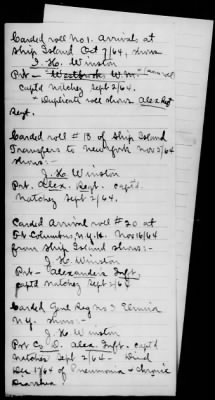 Carded roll No 1. Arrivals at
Ship Island Oct 7/64, shows
J. H. Winston
Pvt - Westbrook, W.M -
capt'd Natchez Sept 2/64.
* Duplicate roll shows Alex Regt
Regt.
Carded roll # 13 of Ship Island
Transfers to New York Nov 5/64
shows:-
J. H. Winston
Pvt. Alex. Regt. capt'd.
Natchez Sept 2/64.
Carded Arrival roll # 20 at
Ft Columbus, N.Y.H. Nov 16/64
from Ship Island shows:-
J. H. Winston
Pvt - Alexander Inft.
capt'd Natchez Sept 2/64
Carded Genl Reg No 3 Elmira
N.Y. shows:-
J. H. Winston
Pvt Co D. Alex. Inft. capt'd
Natchez Sept 2/64 - Died
Dec 1/64 of Pneumonia & chronic
Diarrhea